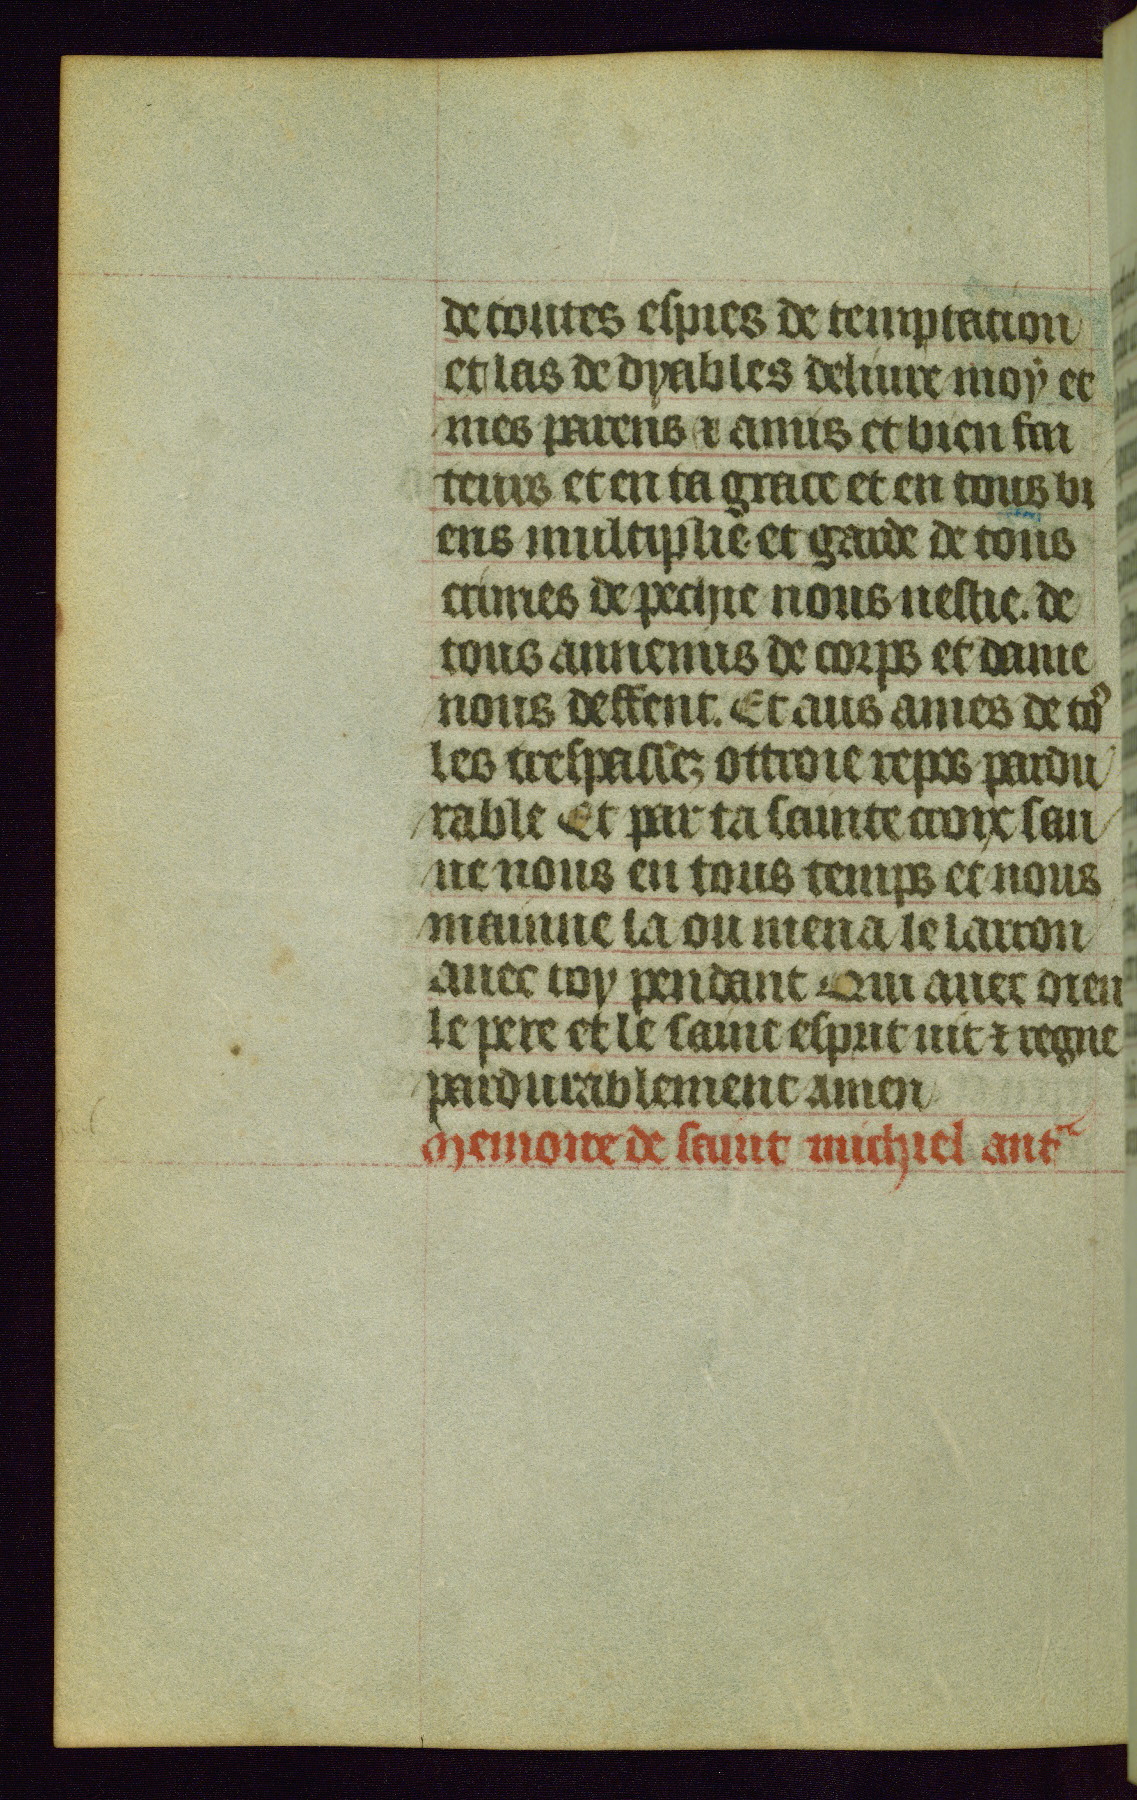 de toutes espies de temptation
et las de dyables deliure moy et
mes parens ⁊ amis et bien fai
teurs et en ta grace et en tous bi
ens multiplie et garde de tous
crimes de pechie nous nestie. de
tous annemis de corps et dame
nous deffent. Et aus ames de toꝰ
les trespassez ottroie repos pardu
rable Et par ta sainte croix sau
ue nous en tous temps et nous
mainne la ou mena le larron
auec toy pendant Qui auec dieu
le pere et le saint esprit uit ⁊ regne
pardurablement amen
Memoire de saint michiel ant